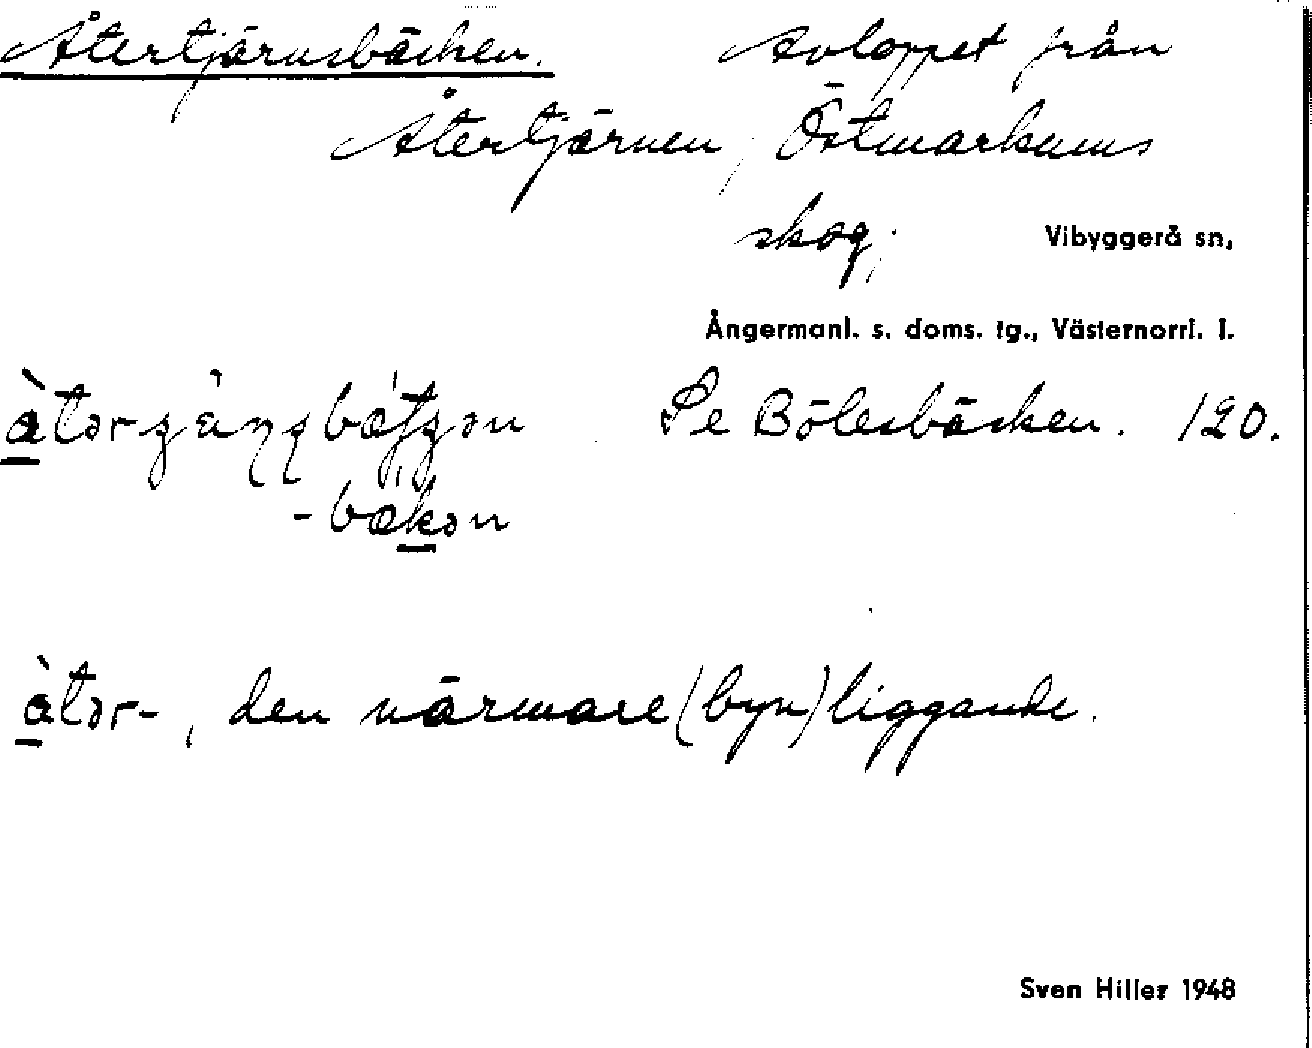 Återtjärnsbäcken. Avloppet från
Återtjärnen, Östmarkums
skog;
Vibyggerå sn,
Ångermanl. s. doms. tg., Västernorrl. l.
Se Bölesbäcken. 120.
-bækən
àtər-, den närmare (byn) liggande.
Sven Hiller 1948